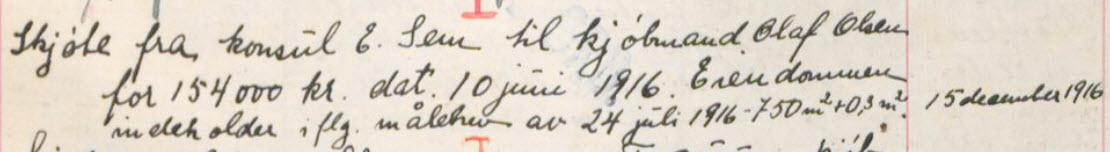 Skjøte fra konsul E. Sem til kjøbmand Olaf Olsen
for 154000 kr. dat. 10 juni 1916. Eiendommen
indeholder iflg. målebrev av 24 juli 1916 - 750 m² + 0,3 m². 15 december 1916